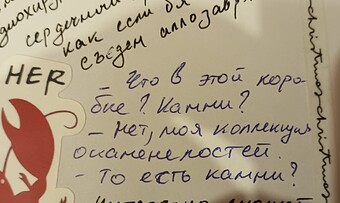 сердечник
как если бы
съеден аллозавр
HER
christmas christmas
– Что в этой коро-
бке? Камни?
– Нет, моя коллекция
окаменелостей.
– То есть камни?